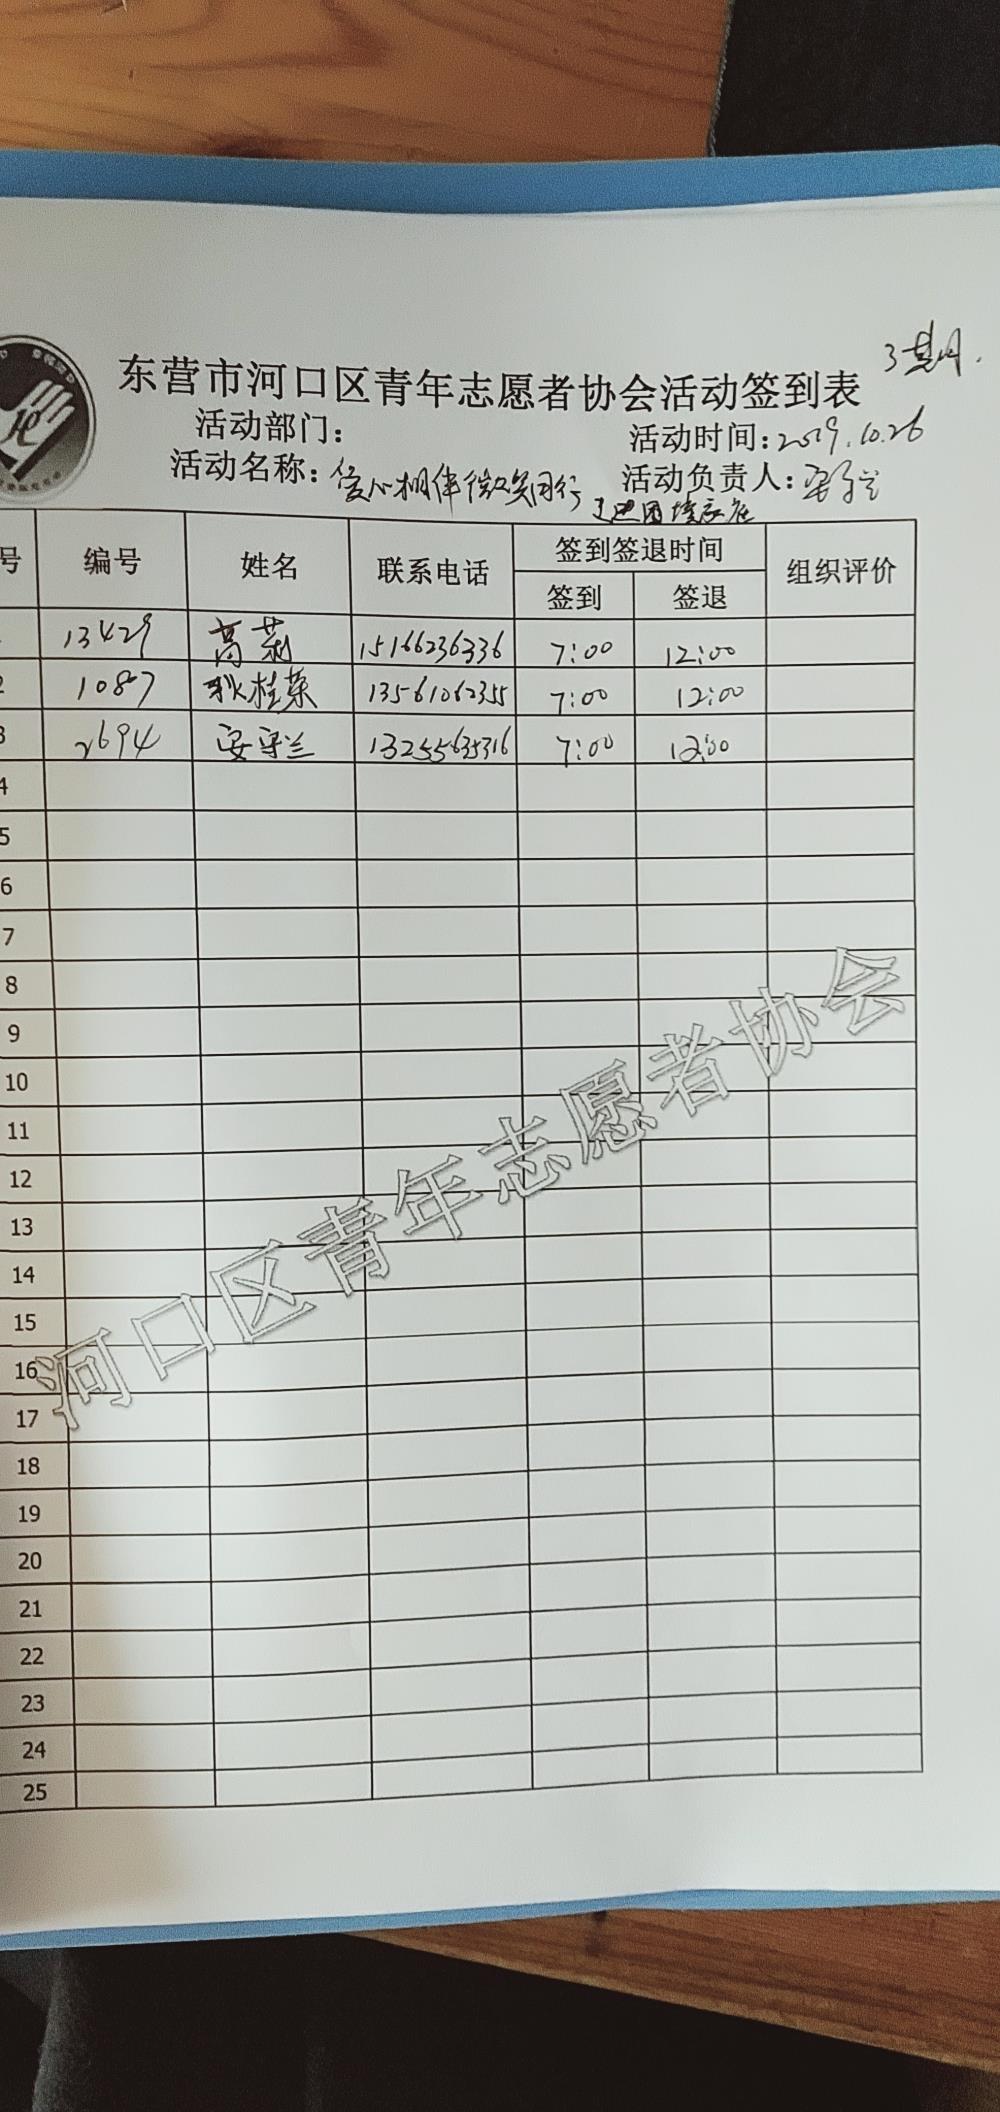 3期.
东营市河口区青年志愿者协会活动签到表
活动部门：
活动时间：2019.10.26
活动名称：爱心相伴微笑同行
活动负责人：安守兰
号 编号 姓名 联系电话 签到签退时间 组织评价
签到 签退
13429 高菊 15166236336 7:00 12:00
2 1087 桂荣 13561062355 7:00 12:00
3 2694 安守兰 13255635316 7:00 12:00
4
5
6
7
8
9
10
11
12
13
14
15
16
17
18
19
20
21
22
23
24
25
河口区青年志愿者协会